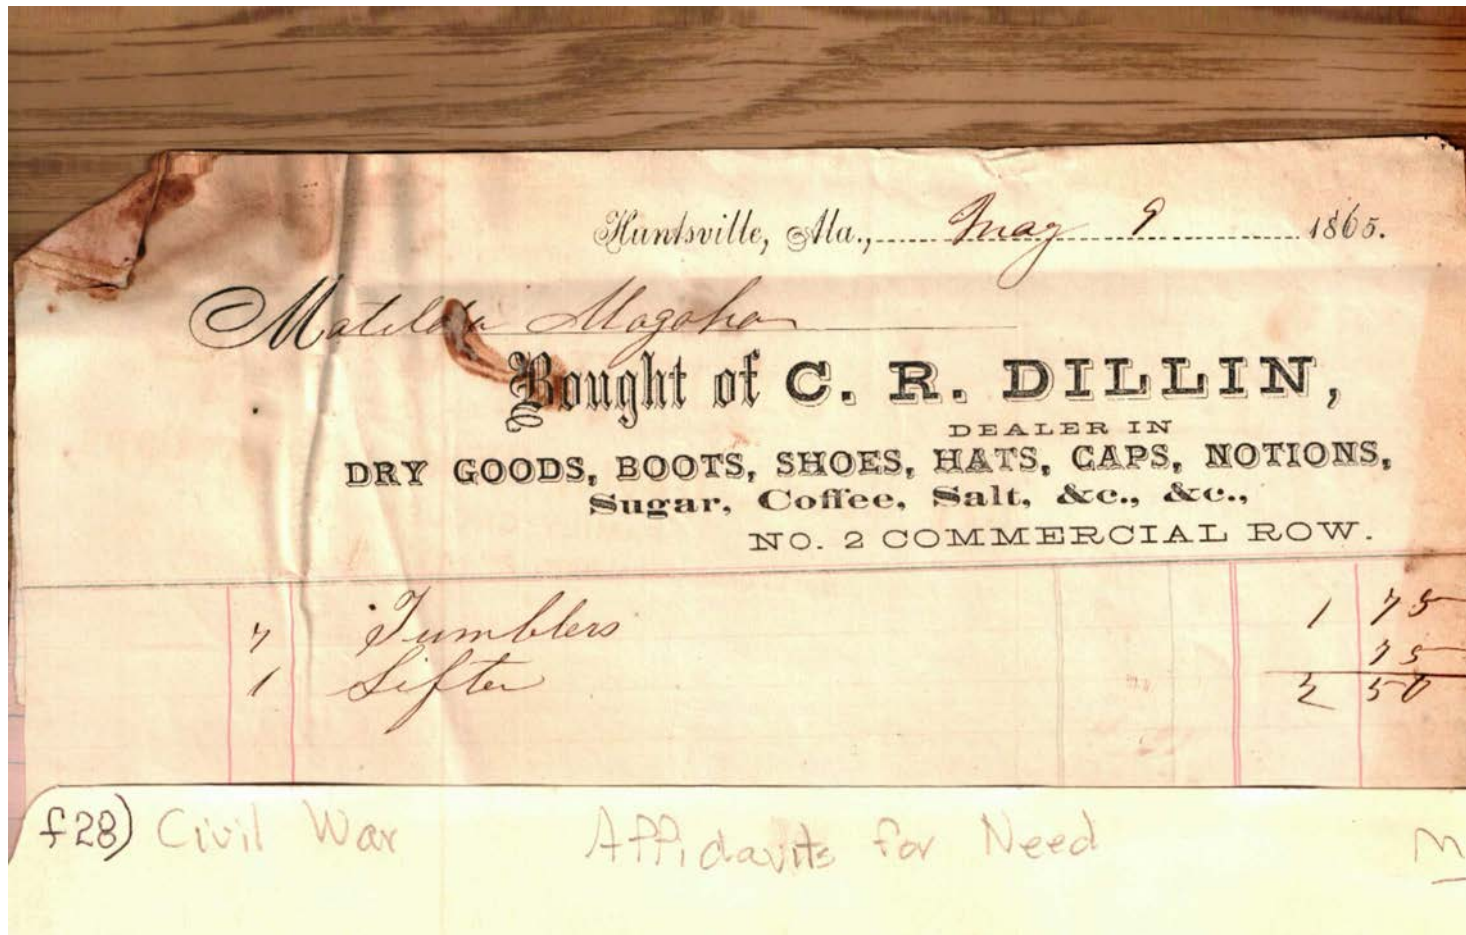 Huntsville, Ala., May 9 1865.
Matilda Magohan
Bought of C. R. DILLIN,
DEALER IN
DRY GOODS, BOOTS, SHOES, HATS, CAPS, NOTIONS,
Sugar, Coffee, Salt, &c., &c.,
NO. 2 COMMERCIAL ROW.
7 Tumblers 1 75
1 Sifter 75
2 50
f28) Civil War Affidavits for Need M